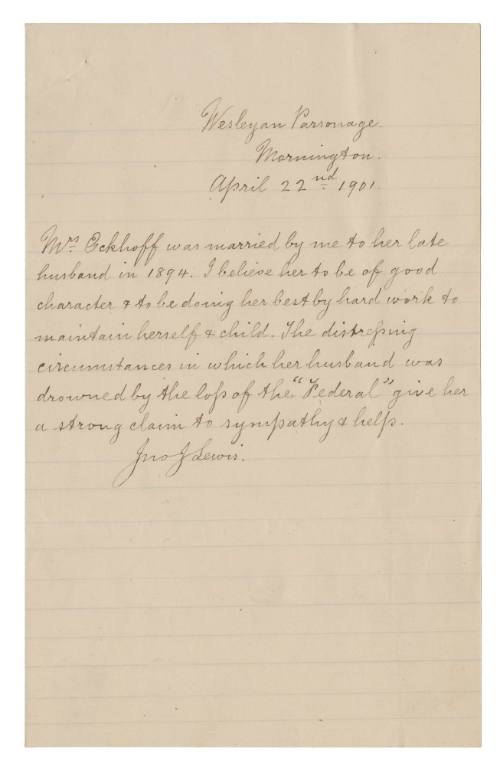 Wesleyan Parsonage.
Mornington.
April 22nd 1901.
Mrs Eckhoff was married by me to her late
husband in 1894. I believe her to be of good
character & to be doing her best by hard work to
maintain herself & child. The distressing
circumstances in which her husband was
drowned by the loss of the "Federal" give her
a strong claim to sympathy & help.
Jno J Lewis.